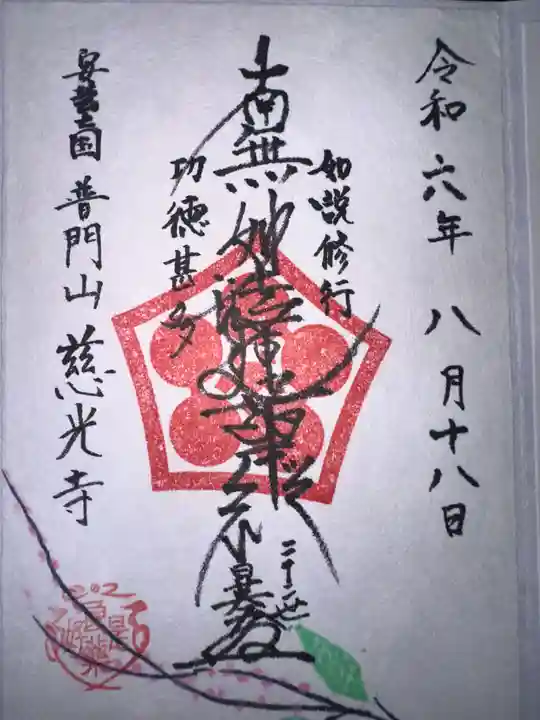 令和六年八月十八日
如説修行
南無妙法蓮華経
功徳甚多
二十二世
安芸国普門山慈光寺